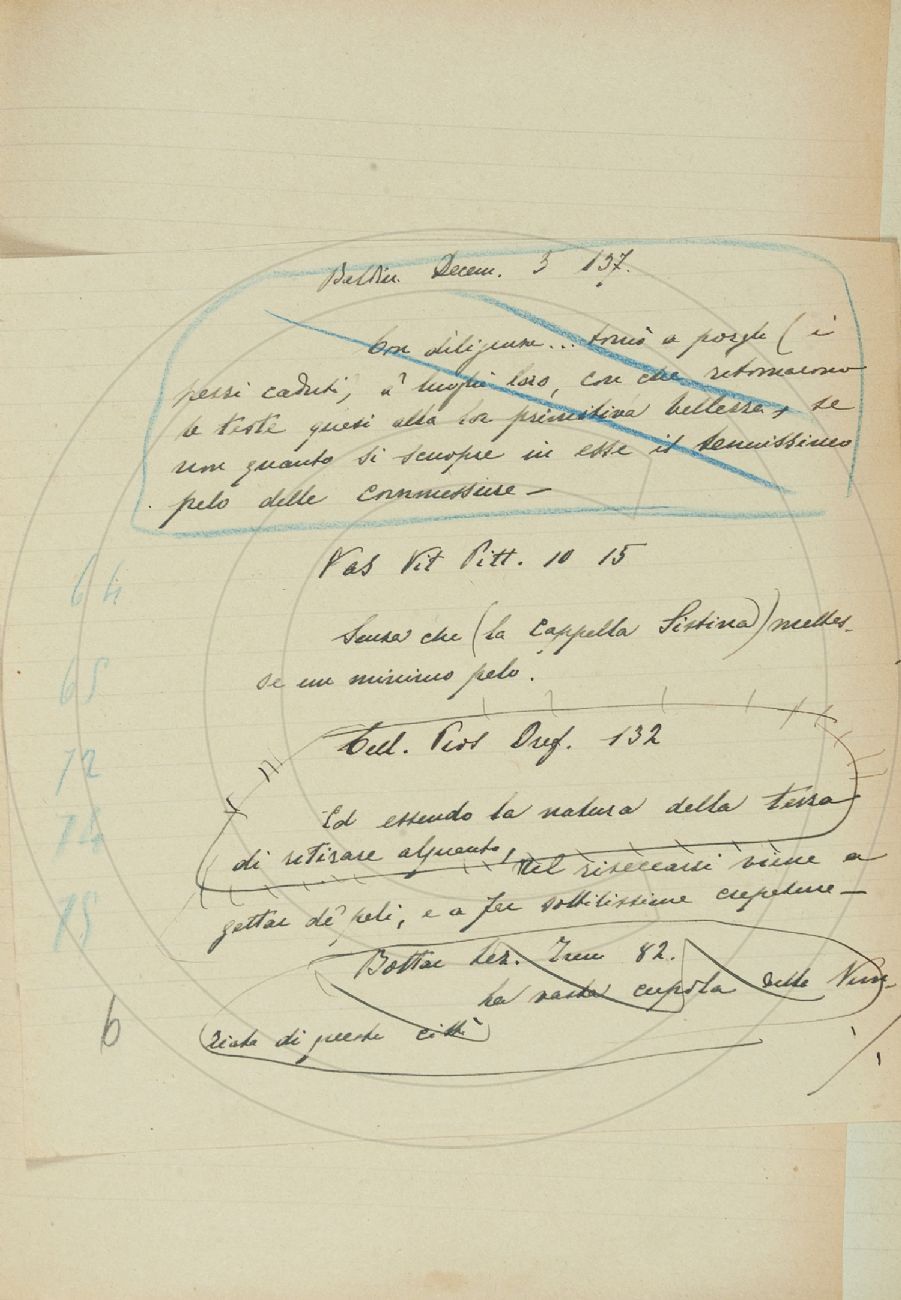 Baldin. Decem. 3 137.
Con diligenza... tornò a porgli (i
pezzi caduti, a' luoghi loro, con che ritornarono
le teste quasi alla lor primitiva bellezza, se
non quanto si scuopre in esse il tenuissimo
pelo delle commessure —
Vas Vit Pitt. 10 15
64
Senza che (la Cappella Sistina) mettes-
se un minimo pelo.
65
Cell. Pros Oref. 132
72
Ed essendo la natura della terra
74
di ritirare alquanto, nel riseccarsi viene a
gettar de' peli, e a far sottilissime crepature —
75
Bottar Lez. Trem 82.
La vasta cupola della Nun-
ziata di questa città
6